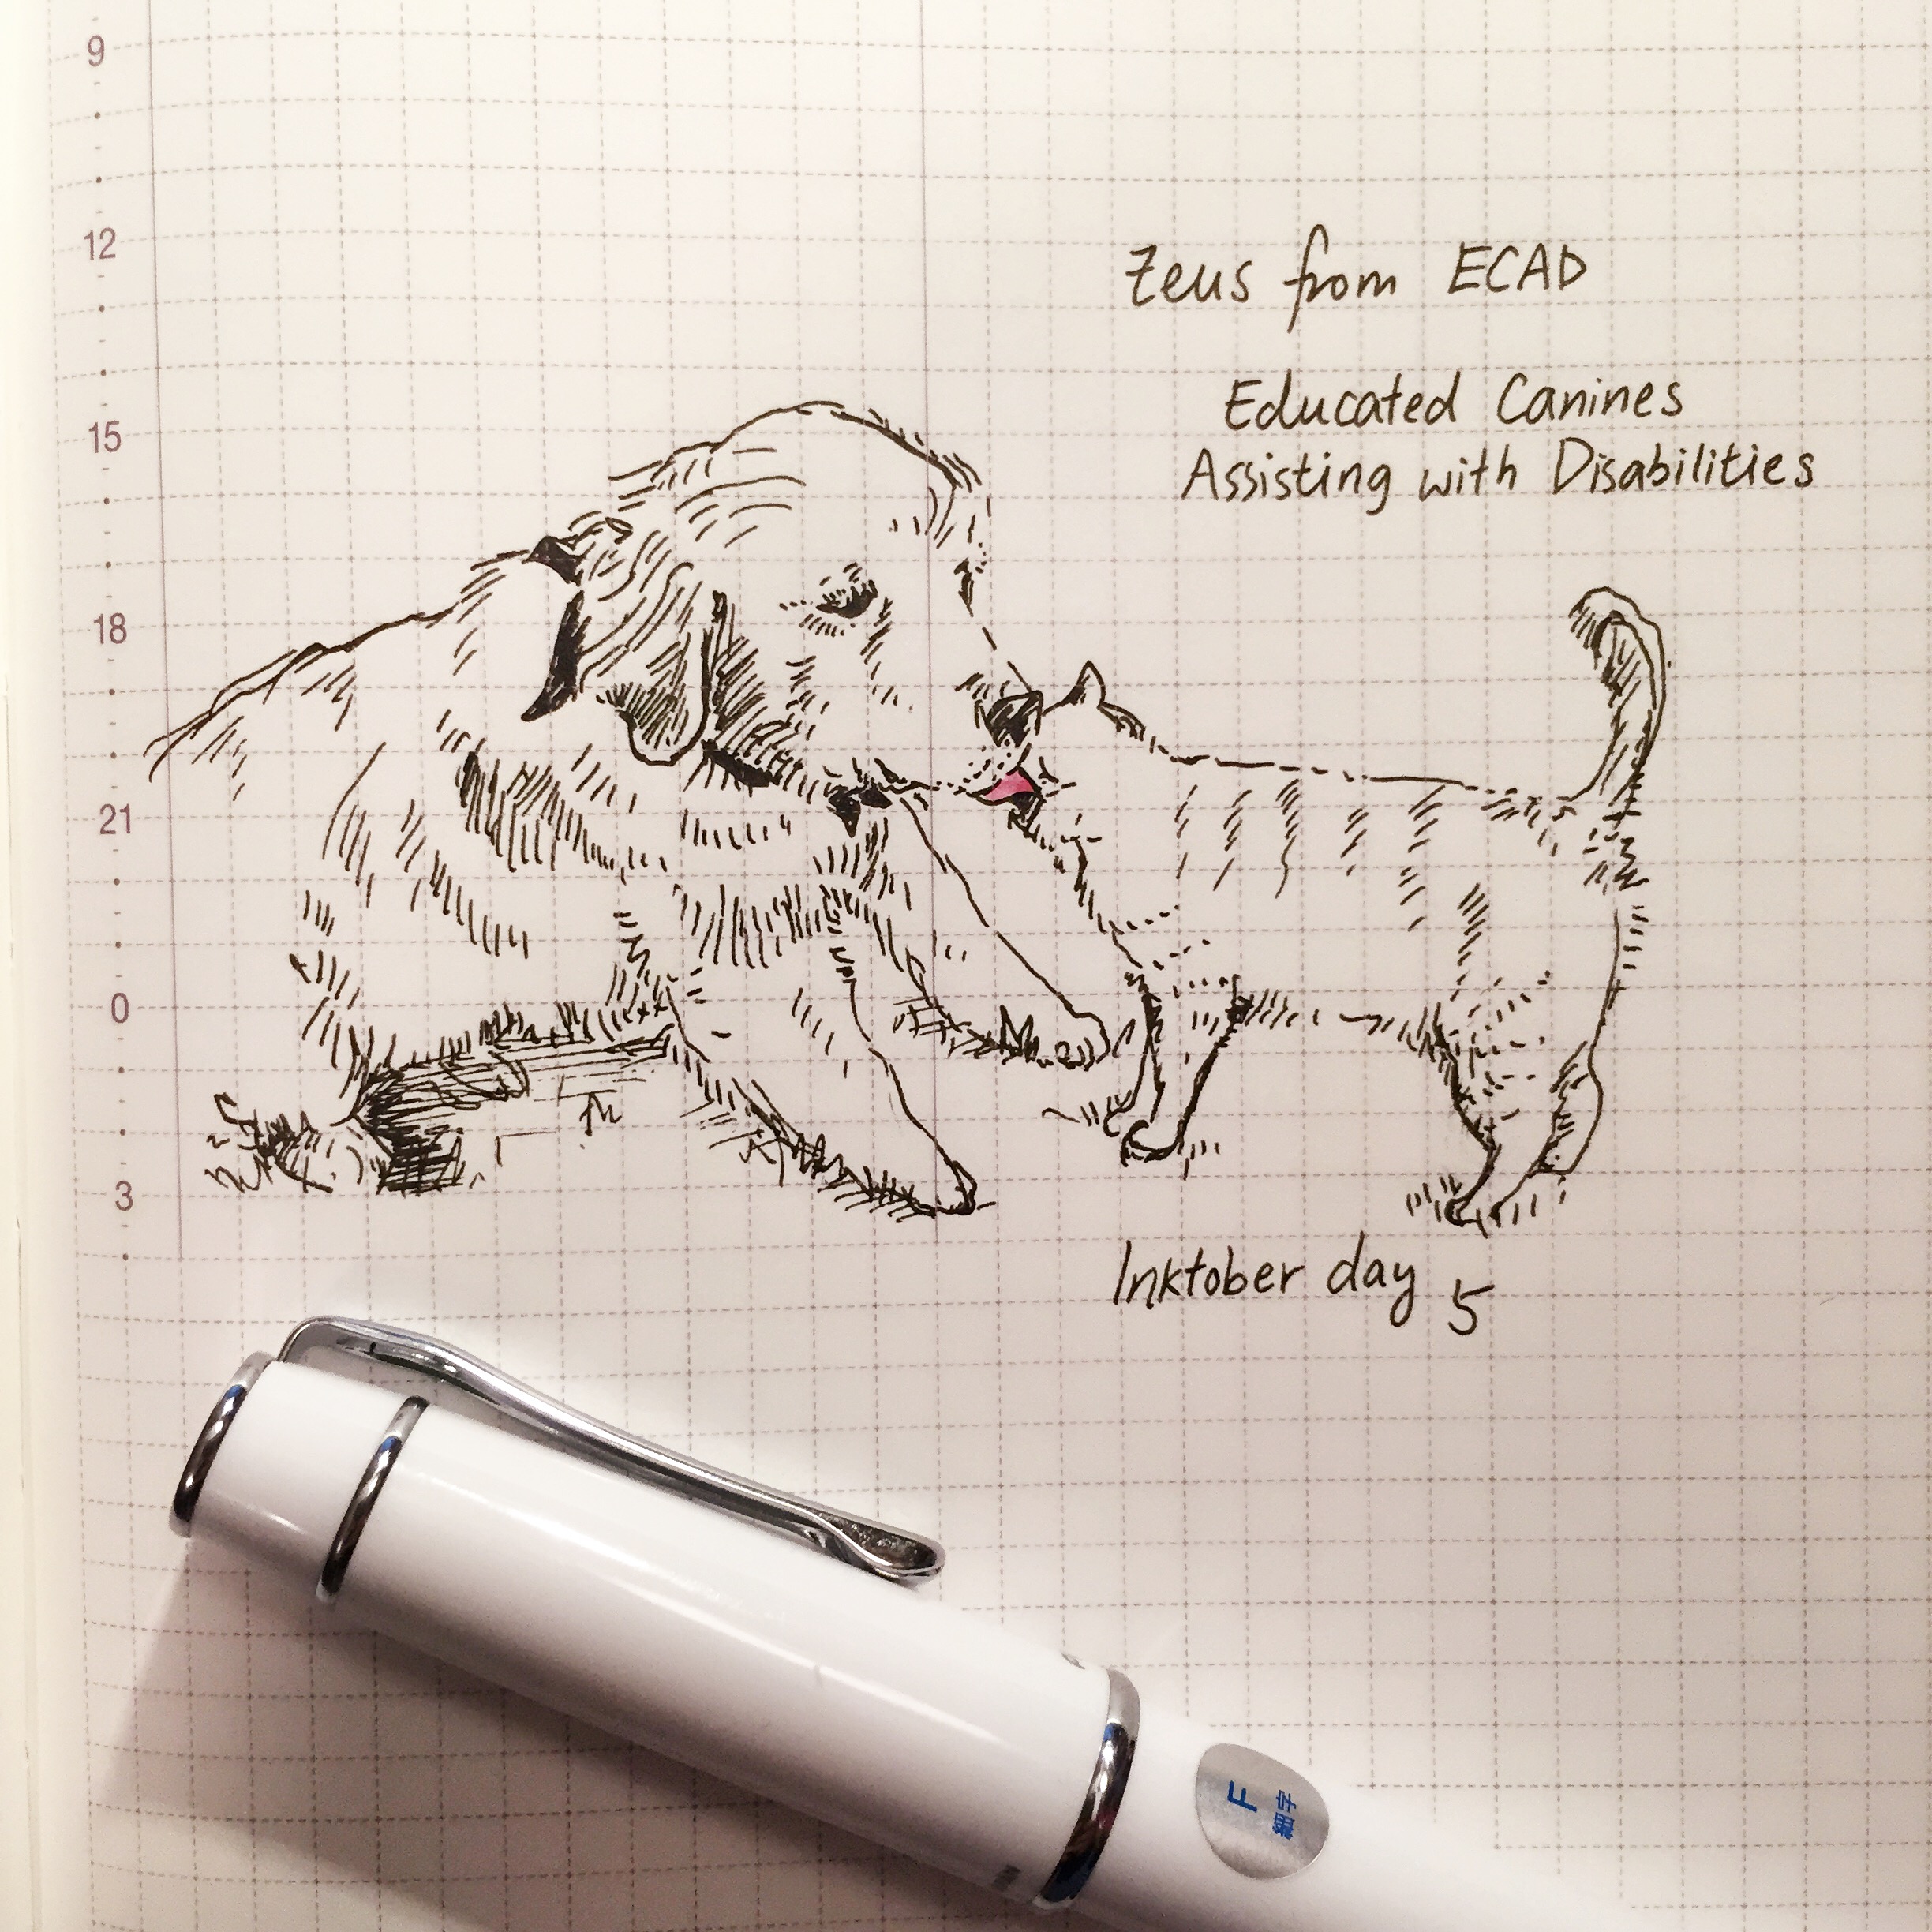 9
12
15
18
21
0
3
Zeus from ECAD
Educated Canines
Assisting with Disabilities
Inktober day 5
F
細字